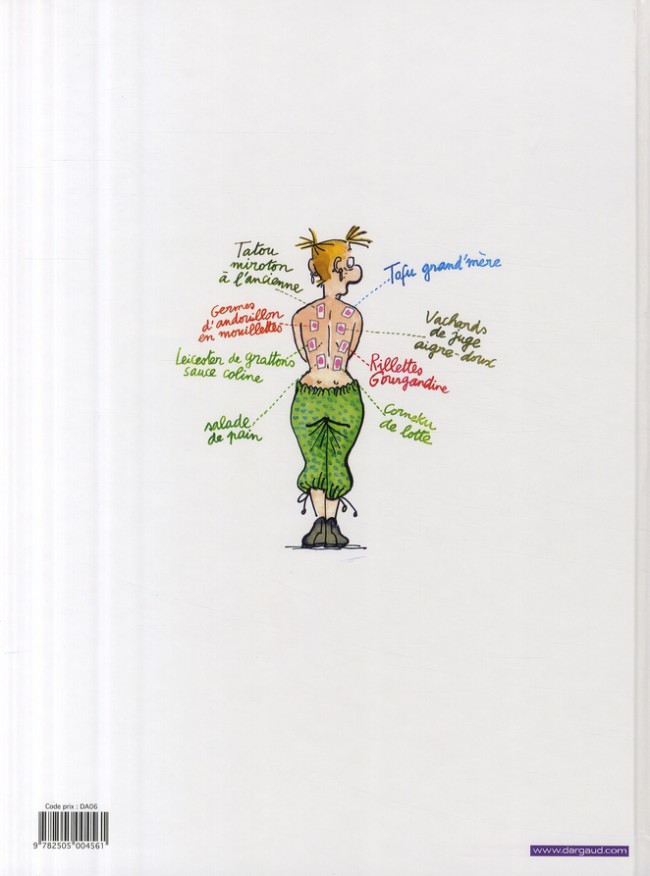 Tatou
miroton
à l'ancienne
Tofu grand'mère
Germes
d'andouillon
en mouillettes
Vachards
de juge
aigre-doux
Leicester de grattons
sauce coline
Rillettes
Gourgandine
salade
de pain
Corneku
de lotte
Code prix : DA06
9 782505 004561
www.dargaud.com